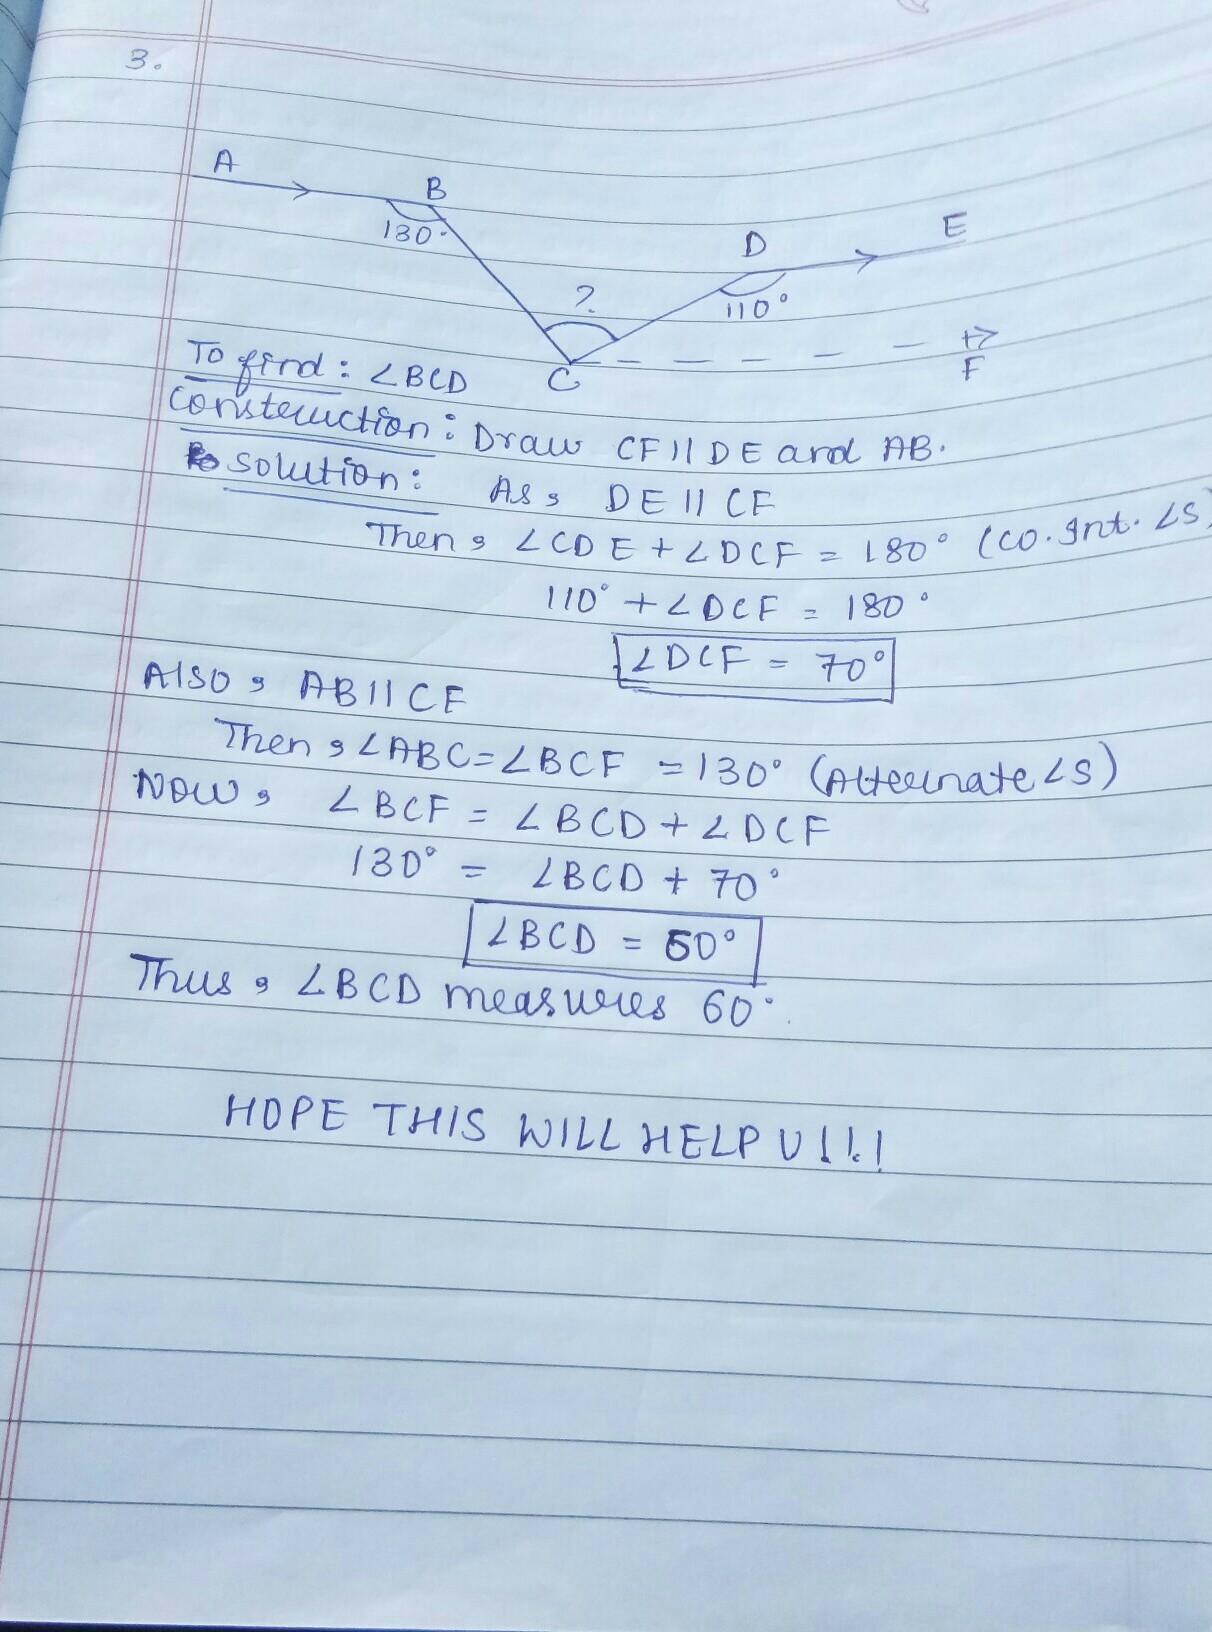 3.
A
B
130°
E
D
?
110°
F
C
To find : ∠BCD
Construction : Draw CF || DE and AB.
Solution : As, DE || CF
Then, ∠CDE + ∠DCF = 180° (Co. Int. ∠S)
110° + ∠DCF = 180°
∠DCF = 70°
Also, AB || CF
Then, ∠ABC = ∠BCF = 130° (Alternate ∠S)
Now, ∠BCF = ∠BCD + ∠DCF
130° = ∠BCD + 70°
∠BCD = 60°
Thus, ∠BCD measures 60°.
HOPE THIS WILL HELP U!!!